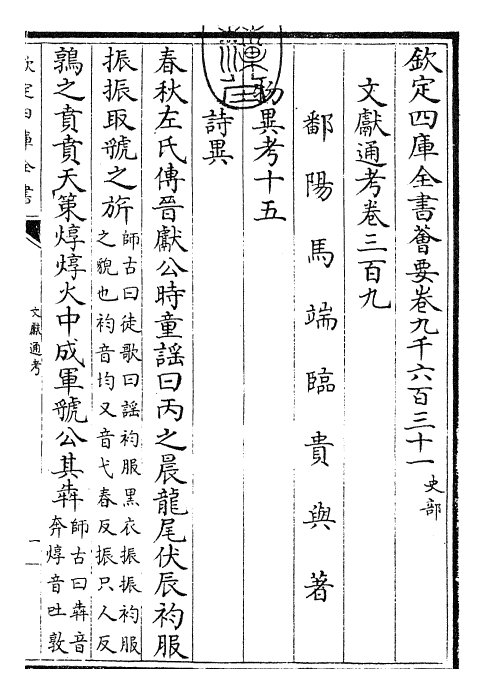 欽定四庫全書薈要卷九千六百三十一 史部
文獻通考卷三百九
鄱陽馬端臨貴與著
物異考十五
詩異
春秋左氏傳晉獻公時童謡曰丙之晨龍尾伏辰袀服
振振取虢之旂師古曰徒歌曰謡袀服黑衣振振袀服
之貌也袀音均又音弋春反振只人反
鶉之賁賁天策焞焞火中成軍虢公其犇師古曰犇音
奔焞音吐敦
欽定四庫全書
文獻通考
一